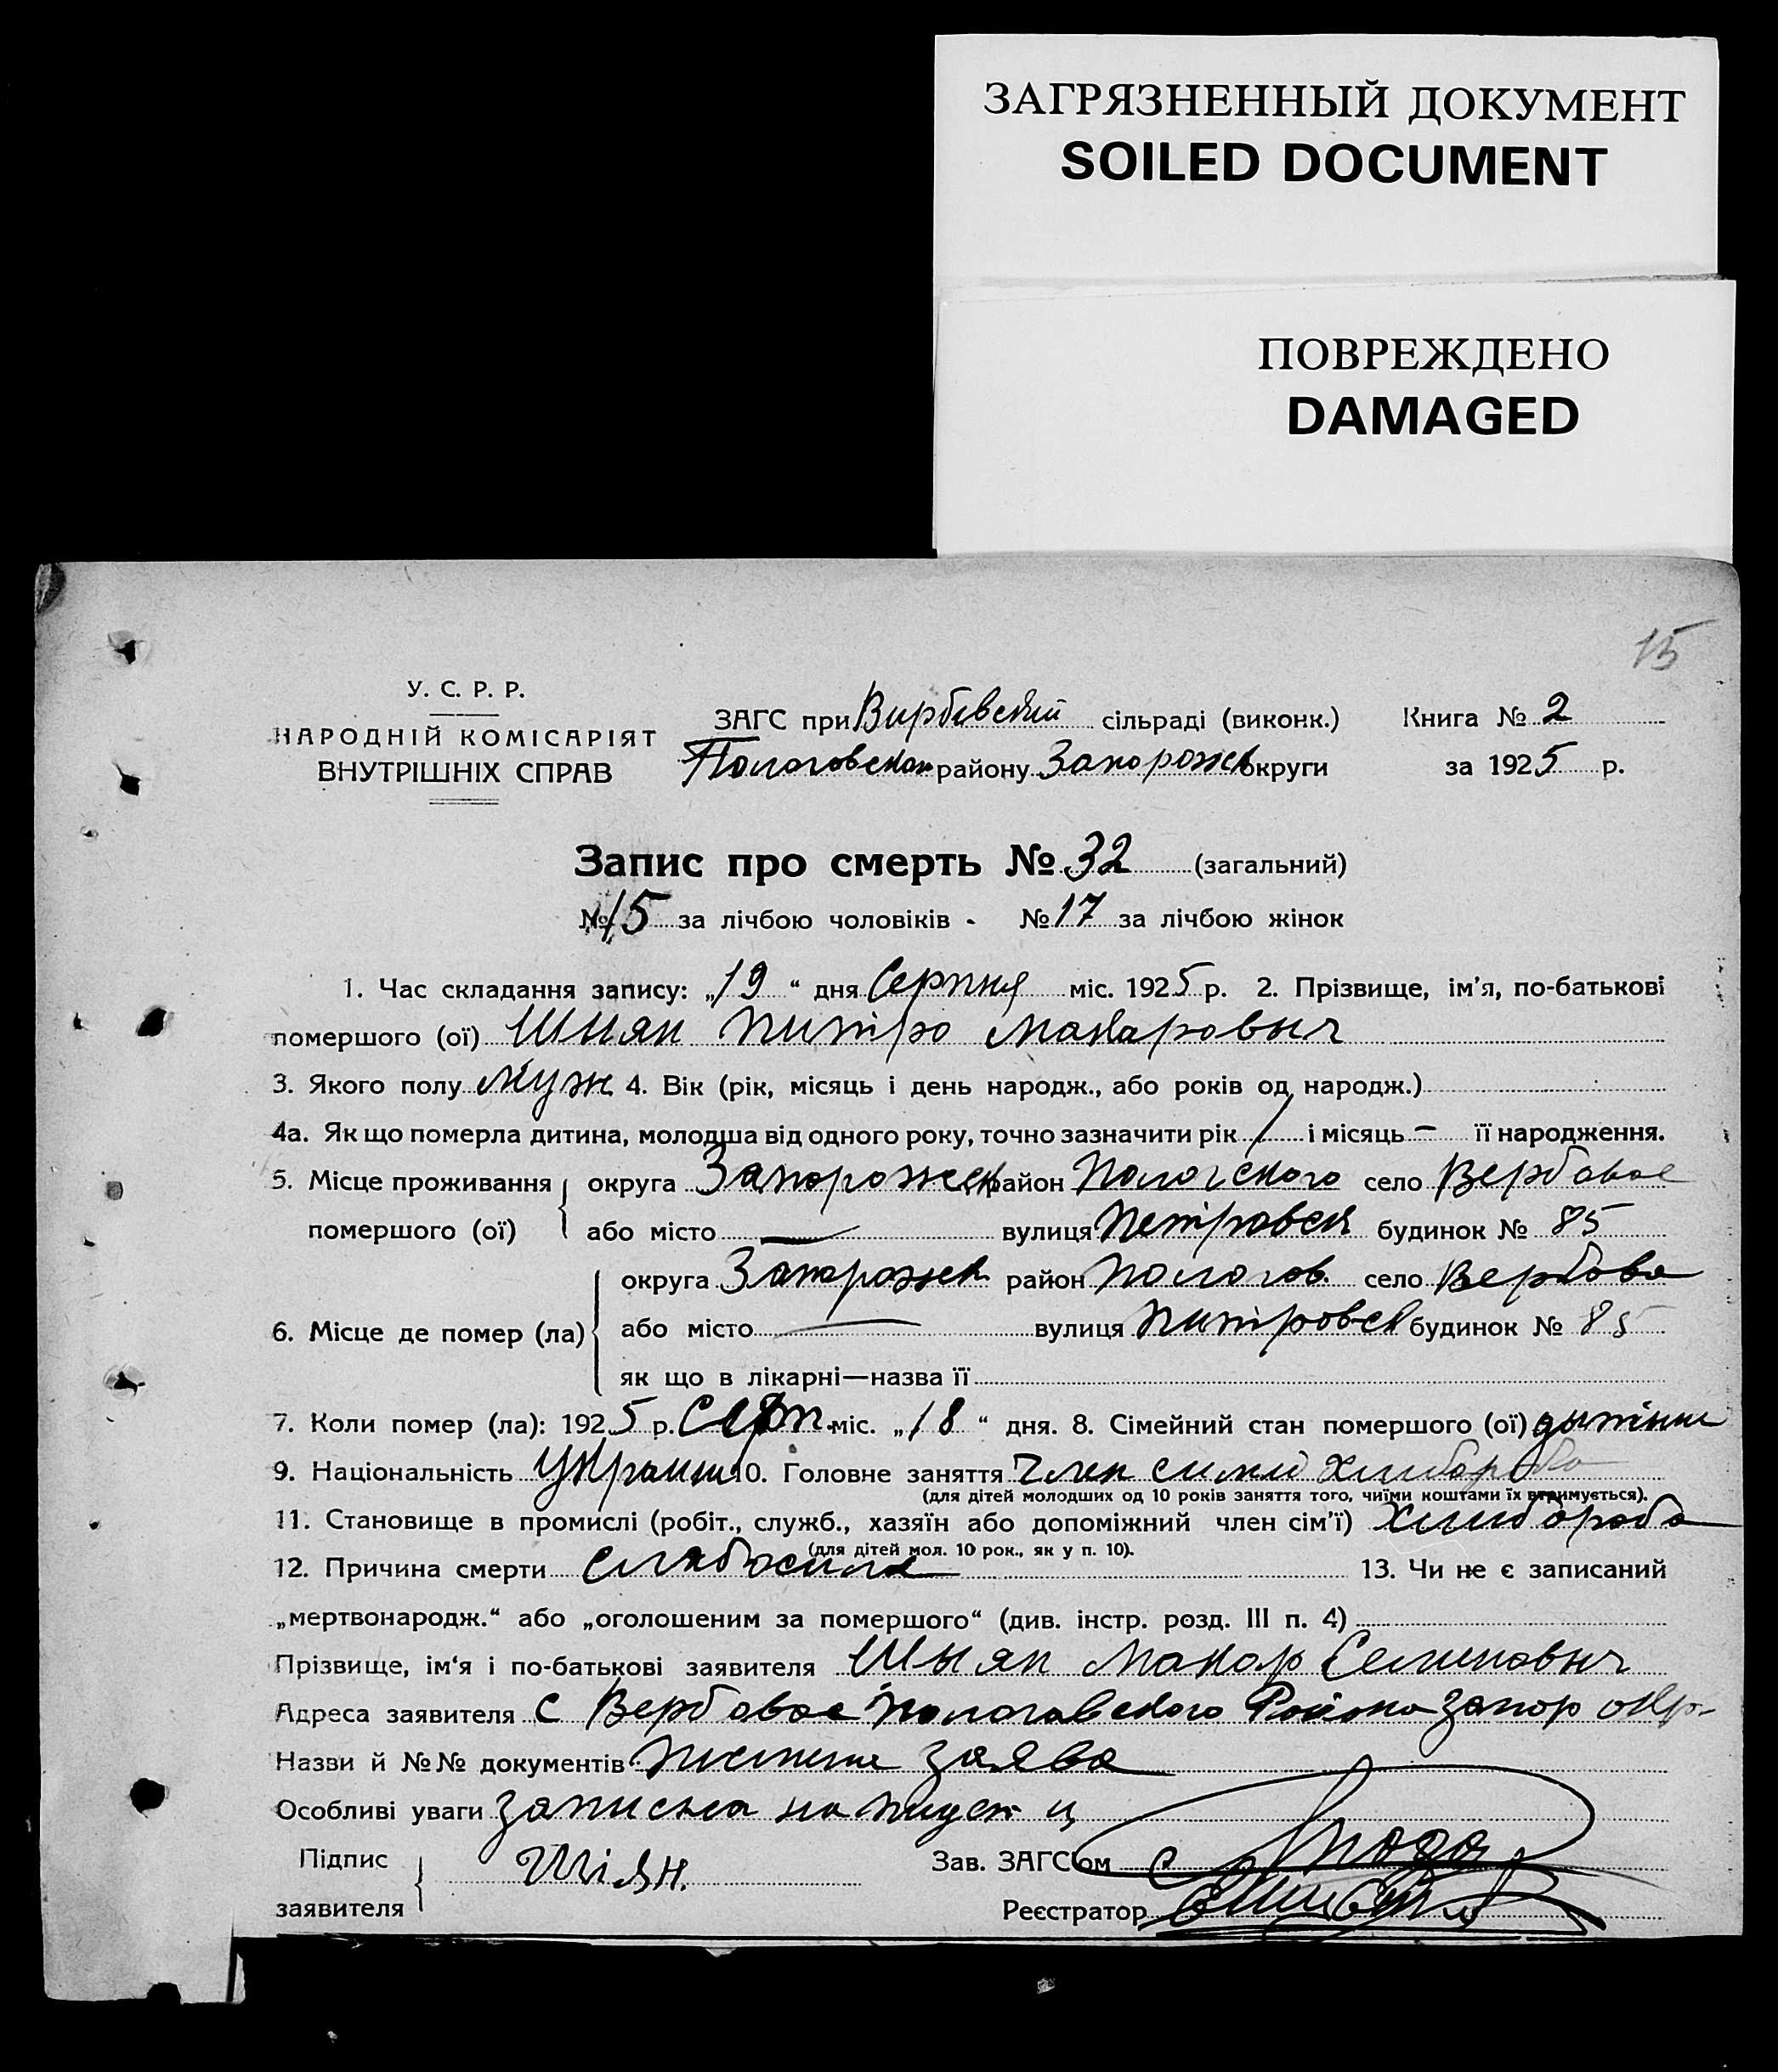 ЗАГРЯЗНЕННЫЙ ДОКУМЕНТ
SOILED DOCUMENT
ПОВРЕЖДЕНО
DAMAGED
15
У. С. Р. Р.
НАРОДНІЙ КОМІСАРІЯТ
ВНУТРІШНІХ СПРАВ
ЗАГС при Вирбовский сільраді (виконк.) Книга № 2
Пологовском району Запорожск округи за 1925 р.
Запис про смерть № 32 (загальний)
№ 15 за лічбою чоловіків - № 17 за лічбою жінок
1. Час складання запису: „19“ дня Серпня міс. 1925 р. 2. Прізвище, ім'я, по-батькові
помершого (ої) Шыян Питро Макаровыч
3. Якого полу муж 4. Вік (рік, місяць і день народж., або років од народж.)
4а. Як що померла дитина, молодша від одного року, точно зазначити рік / і місяць — її народження.
5. Місце проживання округа Запорожск район Пологского село Вербовое
помершого (ої) або місто — вулиця Петровск будинок № 85
округа Запорожск район Пологов. село Вербово
6. Місце де помер (ла) або місто — вулиця Питровск будинок № 85
як що в лікарні—назва її
7. Коли помер (ла): 1925 р. Серп. міс. „18“ дня. 8. Сімейний стан помершого (ої) дытыны
9. Національність Украин 10. Головне заняття Член сими Хлибороба
(для дітей молодших од 10 років заняття того, чиїми коштами їх втримується).
11. Становище в промислі (робіт., служб., хазяїн або допоміжний член сім'ї) Хлибороба
(для дітей мол. 10 рок., як у п. 10).
12. Причина смерти 13. Чи не є записаний
„мертвонародж.“ або „оголошеним за помершого“ (див. інстр. розд. III п. 4)
Прізвище, ім'я і по-батькові заявителя Шыян Макар Семеновыч
Адреса заявителя С Вербовое Пологовского Района Запор окр-
Назви й №№ документів заява
Особливі уваги записка на
Підпис заявителя Шіян. Зав. ЗАГС'ом
Реєстратор